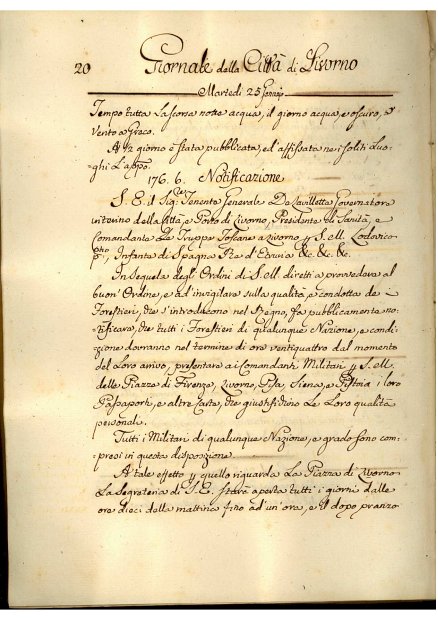 20 Giornale della Città di Livorno
Martedi 25 Gennajo
Tempo tutta la scorsa notte acqua, il giorno acqua, e oscuro, e
Vento a Greco.
A ½ giorno è stata pubblicata, ed affissata nei soliti Luo-
ghi L'appo.
176. 6. Notificazione
S. E. il Sig.re Tenente Generale De Lavillette Governatore
interino della Città, e Porto di Livorno, Presidente di Sanità, e
Comandante le Truppe Toscane a Livorno p S. M. Lodovico
p.mo, Infante di Spagna Re d'Etruria &c. &c. &c.
In Sequela degli Ordini di S. M. diretti a provvedere al
buon Ordine, e ad invigilare sulla qualità, e condotta de i
Forestieri, che s'introducono nel Regno, fa pubblicamente no-
tificare, che tutti i Forestieri di qualunque Nazione, e condi-
zione dovranno nel termine di ore ventiquattro dal momento
del Loro arrivo, presentare ai Comandanti Militari p S. M.
delle Piazze di Firenze, Livorno, Pisa, Siena, e Pistoia i loro
Passaporti, e altre Carte, che giustifichino le Loro qualità
personali.
Tutti i Militari di qualunque Nazione, e grado sono com-
presi in questa disposizione.
A tale effetto p quello riguarda la Piazza di Livorno
La Segreteria di S. E. starà aperta tutti i giorni dalle
ore dieci della mattina fino ad un'ora, e il dopo pranzo